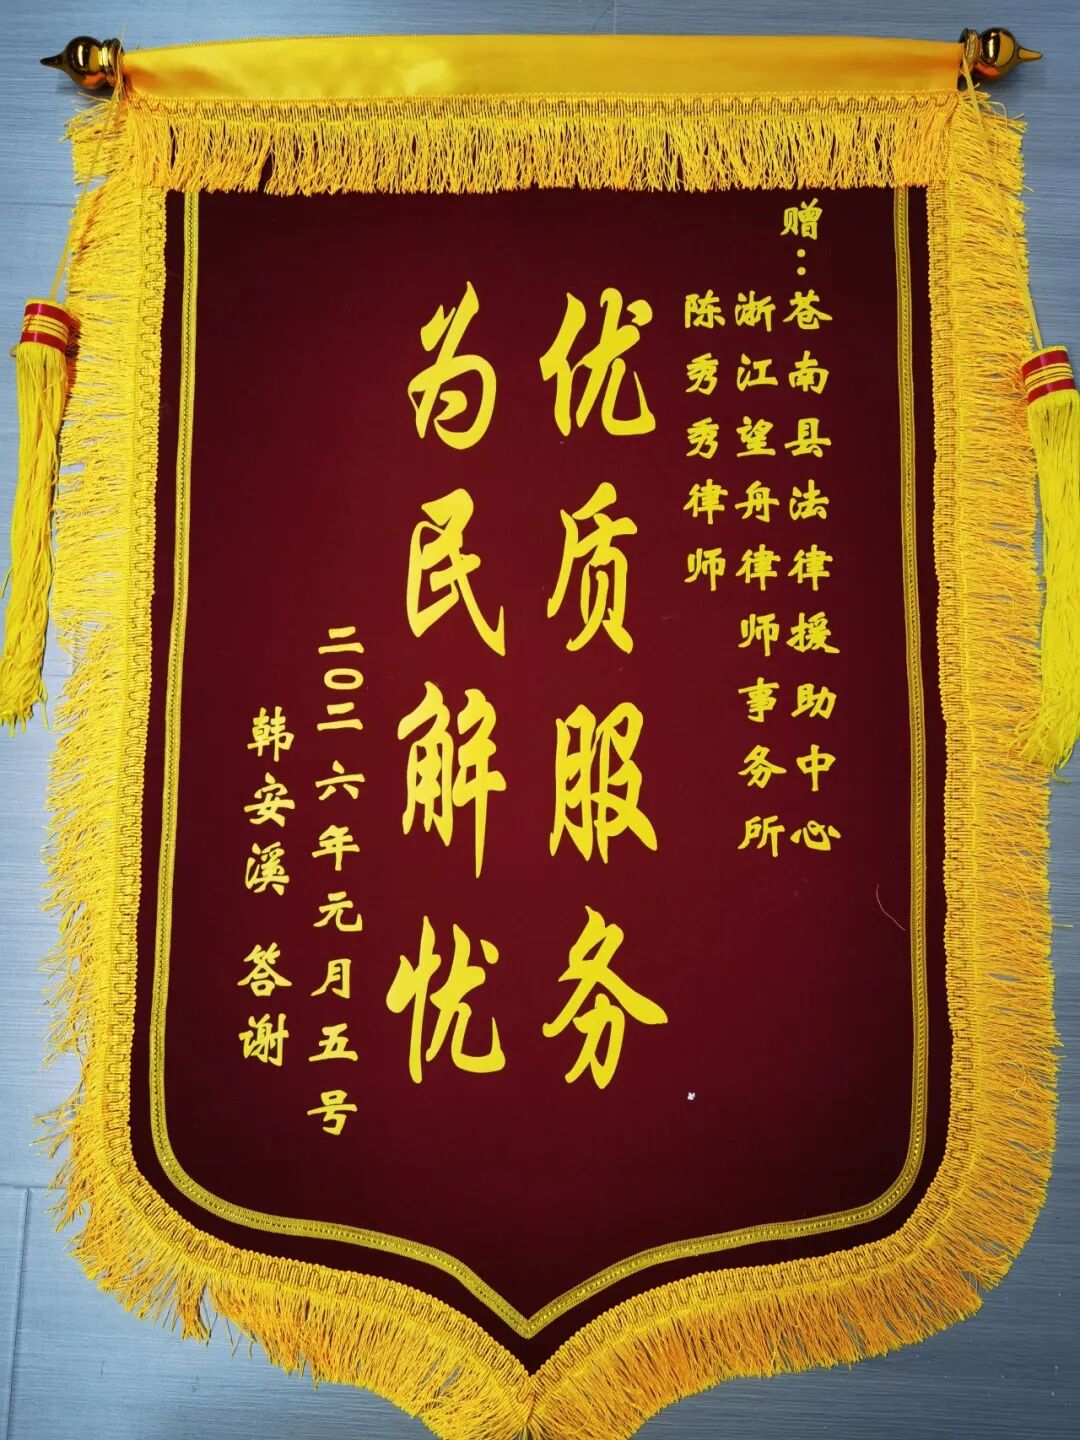 赠：苍南县法律援助中心
浙江望舟律师事务所
陈秀秀律师
优质服务
为民解忧
二〇二六年元月五号
韩安溪 答谢